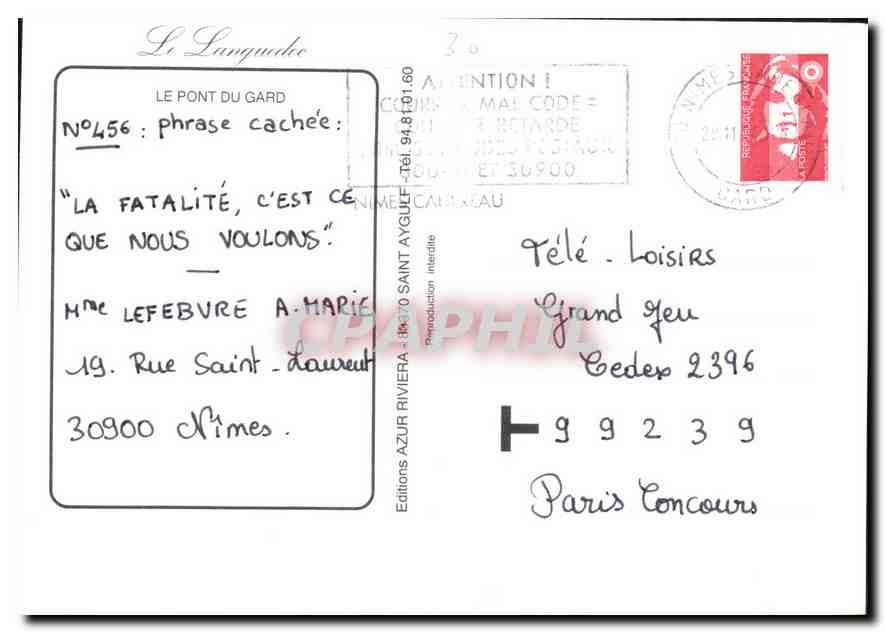 Le Languedoc
LE PONT DU GARD
N°456 : phrase cachée :
"LA FATALITÉ, C'EST CE
QUE NOUS VOULONS".
Mme LEFEBVRE A-MARIE
19. Rue Saint-Laurent
30900 Nîmes.
Editions AZUR RIVIERA - 83370 SAINT AYGULF - Tél. 94.81.01.60
Reproduction interdite
30
ATTENTION !
COURRIER MAL CODE =
COURRIER RETARDE
30900
NIMES
GARD
REPUBLIQUE FRANÇAISE
LA POSTE
Télé - Loisirs
Grand Jeu
Cedex 2396
T 99239
Paris Concours
CPAPHIL